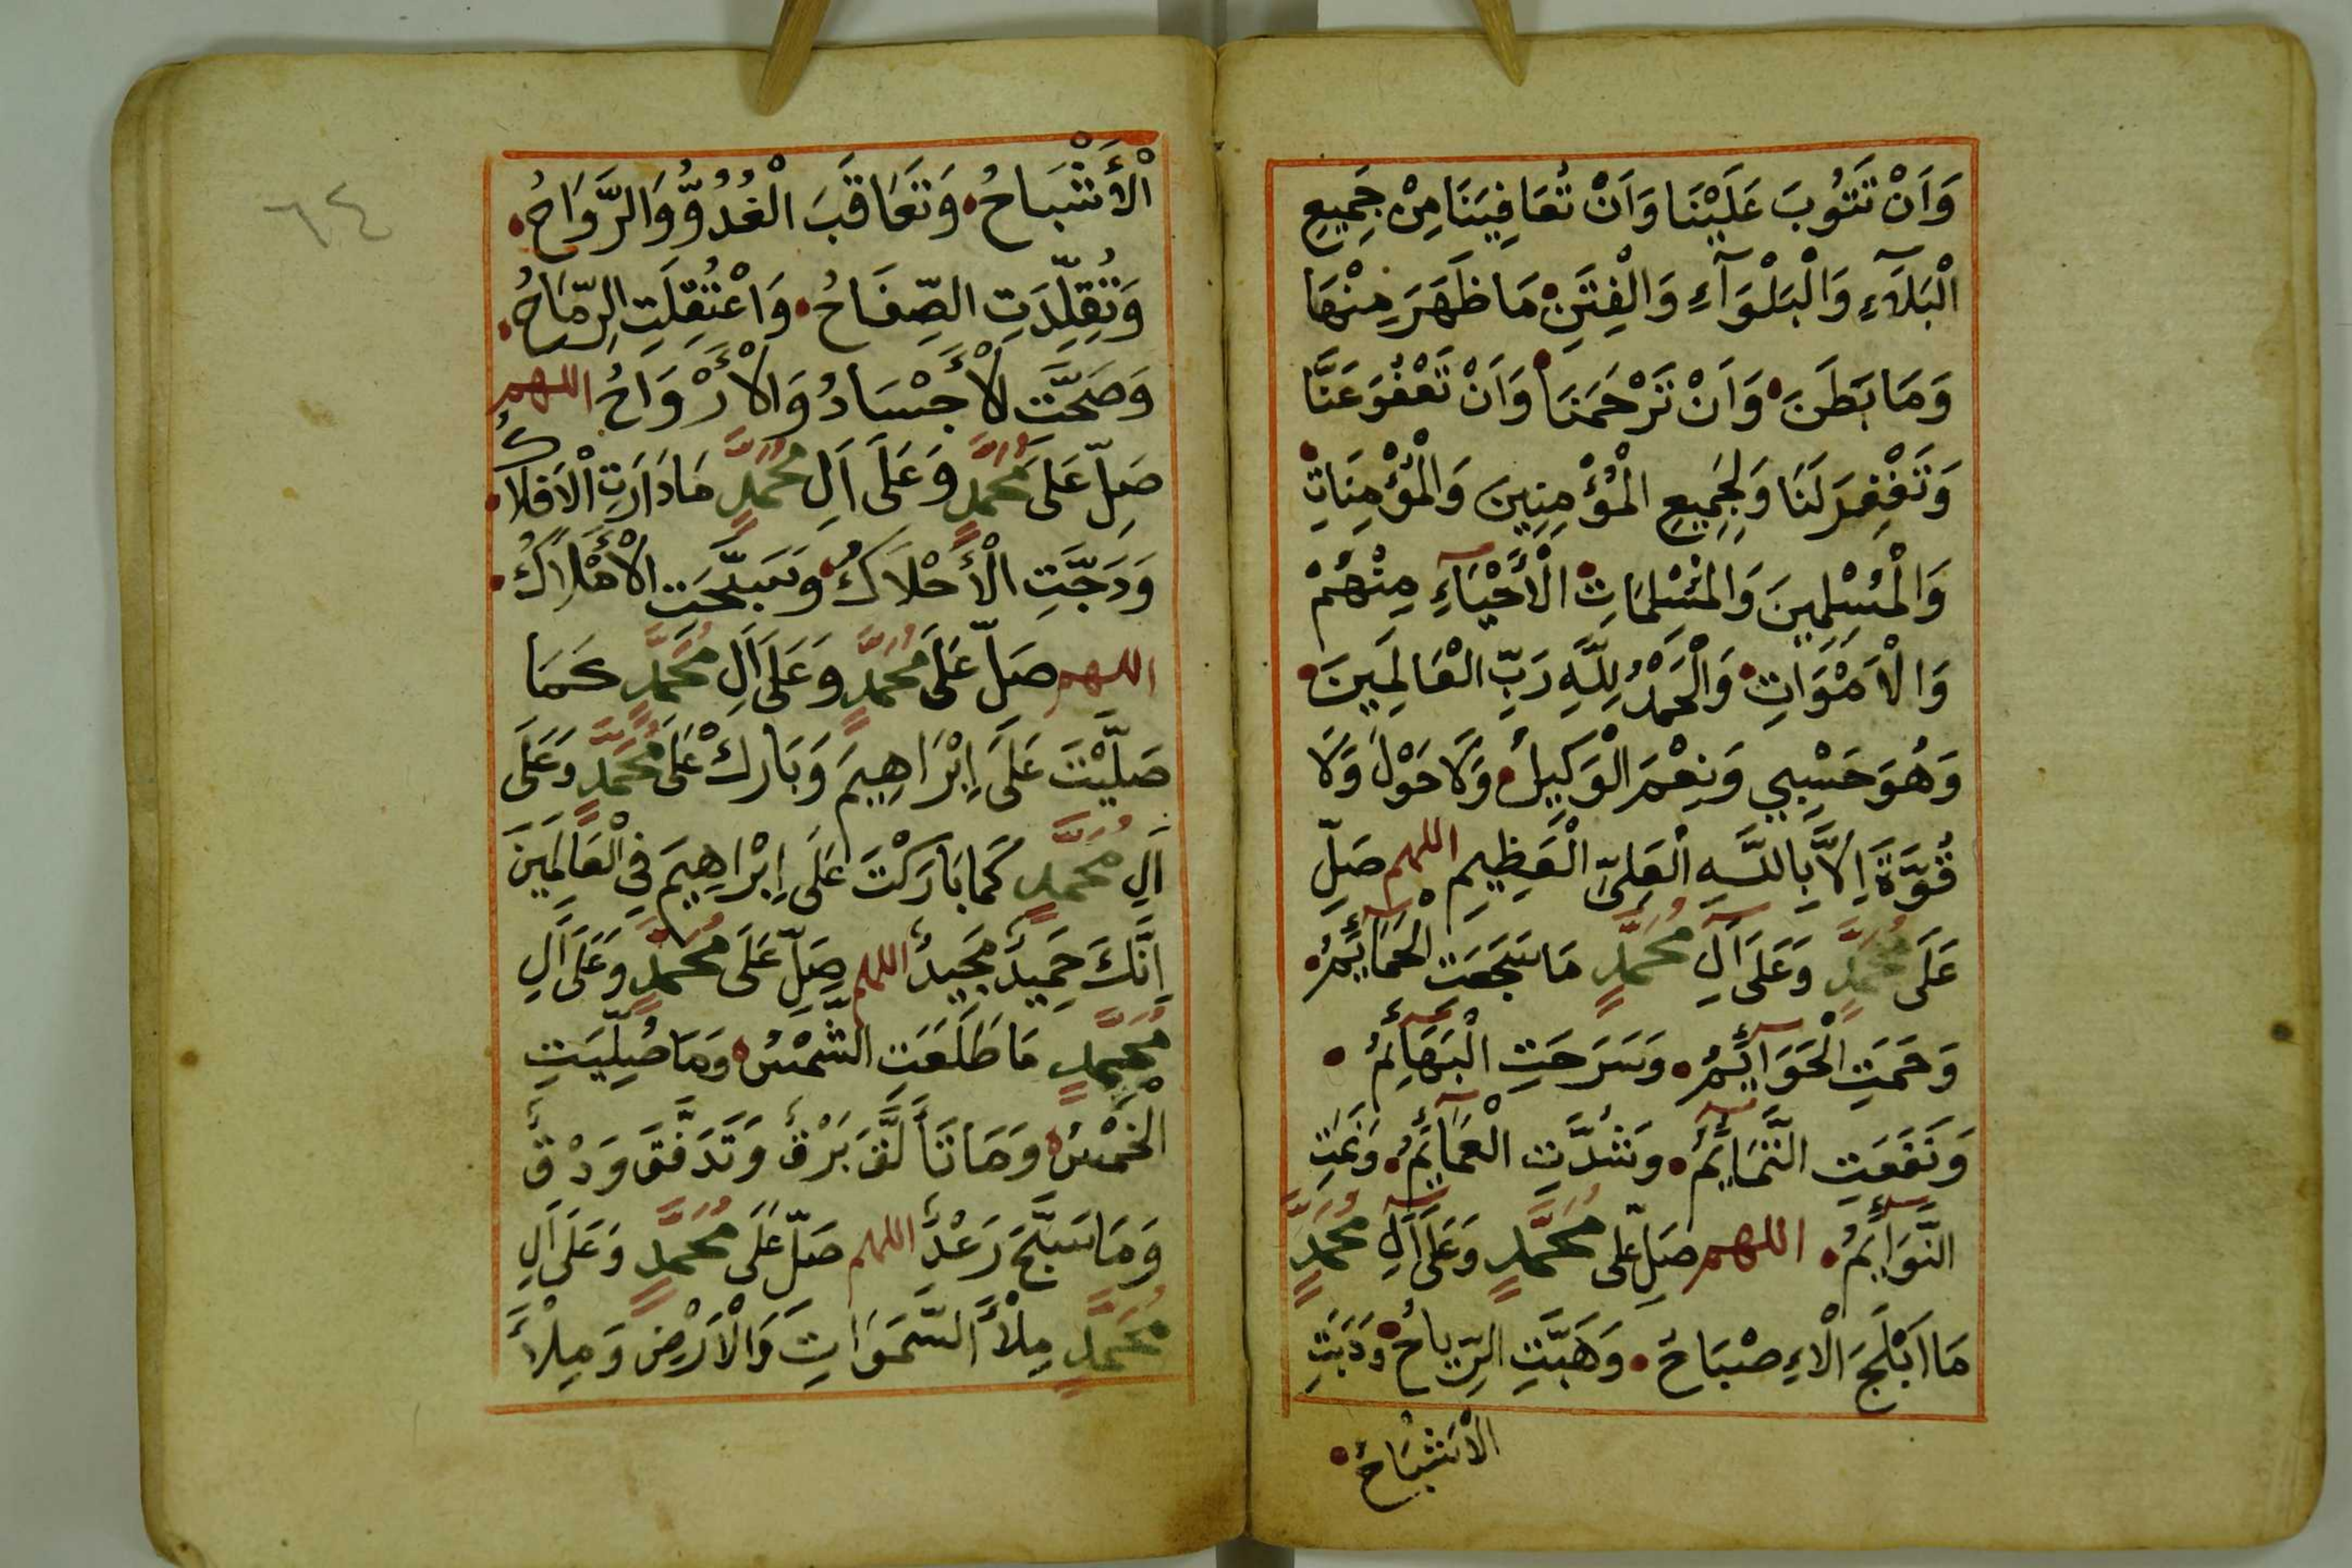 وَاَنْ تَتُوبَ عَلَيْنَا وَاَنْ تُعَافِيَنَا مِنْ جَمِيعِ
الْبَلَآءِ وَالْبَلْوَآءِ وَالْفِتَنِ مَا ظَهَرَ مِنْهَا
وَمَا بَطَنَ وَاَنْ تَرْحَمَنَا وَاَنْ تَعْفُوَ عَنَّا
وَتَغْفِرَ لَنَا وَلِجَمِيعِ الْمُؤْمِنِينَ وَالْمُؤْمِنَاتِ
وَالْمُسْلِمِينَ وَالْمُسْلِمَاتِ الْأَحْيَآءِ مِنْهُمْ
وَالْاَمْوَاتِ وَالْحَمْدُ لِلَّهِ رَبِّ الْعَالَمِينَ
وَهُوَ حَسْبِي وَنِعْمَ الْوَكِيلُ وَلَا حَوْلَ وَلَا
قُوَّةَ اِلَّا بِاللَّهِ الْعَلِيِّ الْعَظِيمِ اللهم صَلِّ
عَلَى مُحَمَّدٍ وَعَلَى آلِ مُحَمَّدٍ مَا سَجَعَتِ الْحَمَآئِمُ
وَحَمَتِ الْحَوَآئِمُ وَسَرَحَتِ الْبَهَآئِمُ
وَنَفَعَتِ التَّمَآئِمُ وَشُدَّتِ الْعَمَآئِمُ وَنَمَتِ
النَّوَآئِمُ اللهم صَلِّ عَلى مُحَمَّدٍ وَعَلَى آلِ مُحَمَّدٍ
مَا اَبْلَجَ الْاِصْبَاحُ وَهَبَّتِ الرِّيَاحُ وَدَبَّتِ
الْاَشْبَاحُ
٦٤
الْأَشْبَاحُ وَتَعَاقَبَ الْغُدُوُّ وَالرَّوَاحُ
وَتُقُلِّدَتِ الصِّفَاحُ وَاعْتُقِلَتِ الرِّمَاحُ
وَصَحَّتِ الْأَجْسَادُ وَالْأَرْوَاحُ اللهم
صَلِّ عَلَى مُحَمَّدٍ وَعَلَى اَلِ مُحَمَّدٍ مَا دَارَتِ الْاَفْلَاكُ
وَدَجَتِ الْأَحْلَاكُ وَسَبَّحَتِ الْأَمْلَاكُ
اللهم صَلِّ عَلَى مُحَمَّدٍ وَعَلَى اَلِ مُحَمَّدٍ كَمَا
صَلَّيْتَ عَلَى اِبْرَاهِيمَ وَبَارِكْ عَلَى مُحَمَّدٍ وَعَلَى
اَلِ مُحَمَّدٍ كَمَا بَارَكْتَ عَلَى اِبْرَاهِيمَ فِي الْعَالَمِينَ
اِنَّكَ حَمِيدٌ مَجِيدٌ اللهم صَلِّ عَلَى مُحَمَّدٍ وَعَلَى اَلِ
مُحَمَّدٍ مَا طَلَعَتِ الشَّمْسُ وَمَا صُلِّيَتِ
الْخَمْسُ وَمَا تَأَلَّقَ بَرْقٌ وَتَدَفَّقَ وَدْقٌ
وَمَا سَبَّحَ رَعْدٌ اللهم صَلِّ عَلَى مُحَمَّدٍ وَعَلَى اَلِ
مُحَمَّدٍ مِلْأَ السَّمَوَاتِ وَالْاَرْضِ وَمِلْأَ